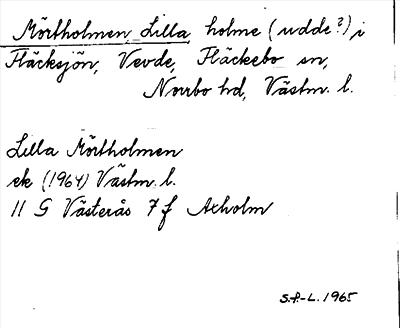 Mörtholmen, Lilla, holme (udde?) i
Fläcksjön, Vevde, Fläckebo sn,
Norrbo hd, Västm. l.
Lilla Mörtholmen
ek (1964) Västm. l.
11 G Västerås 7 f Axholm
S.P-L. 1965